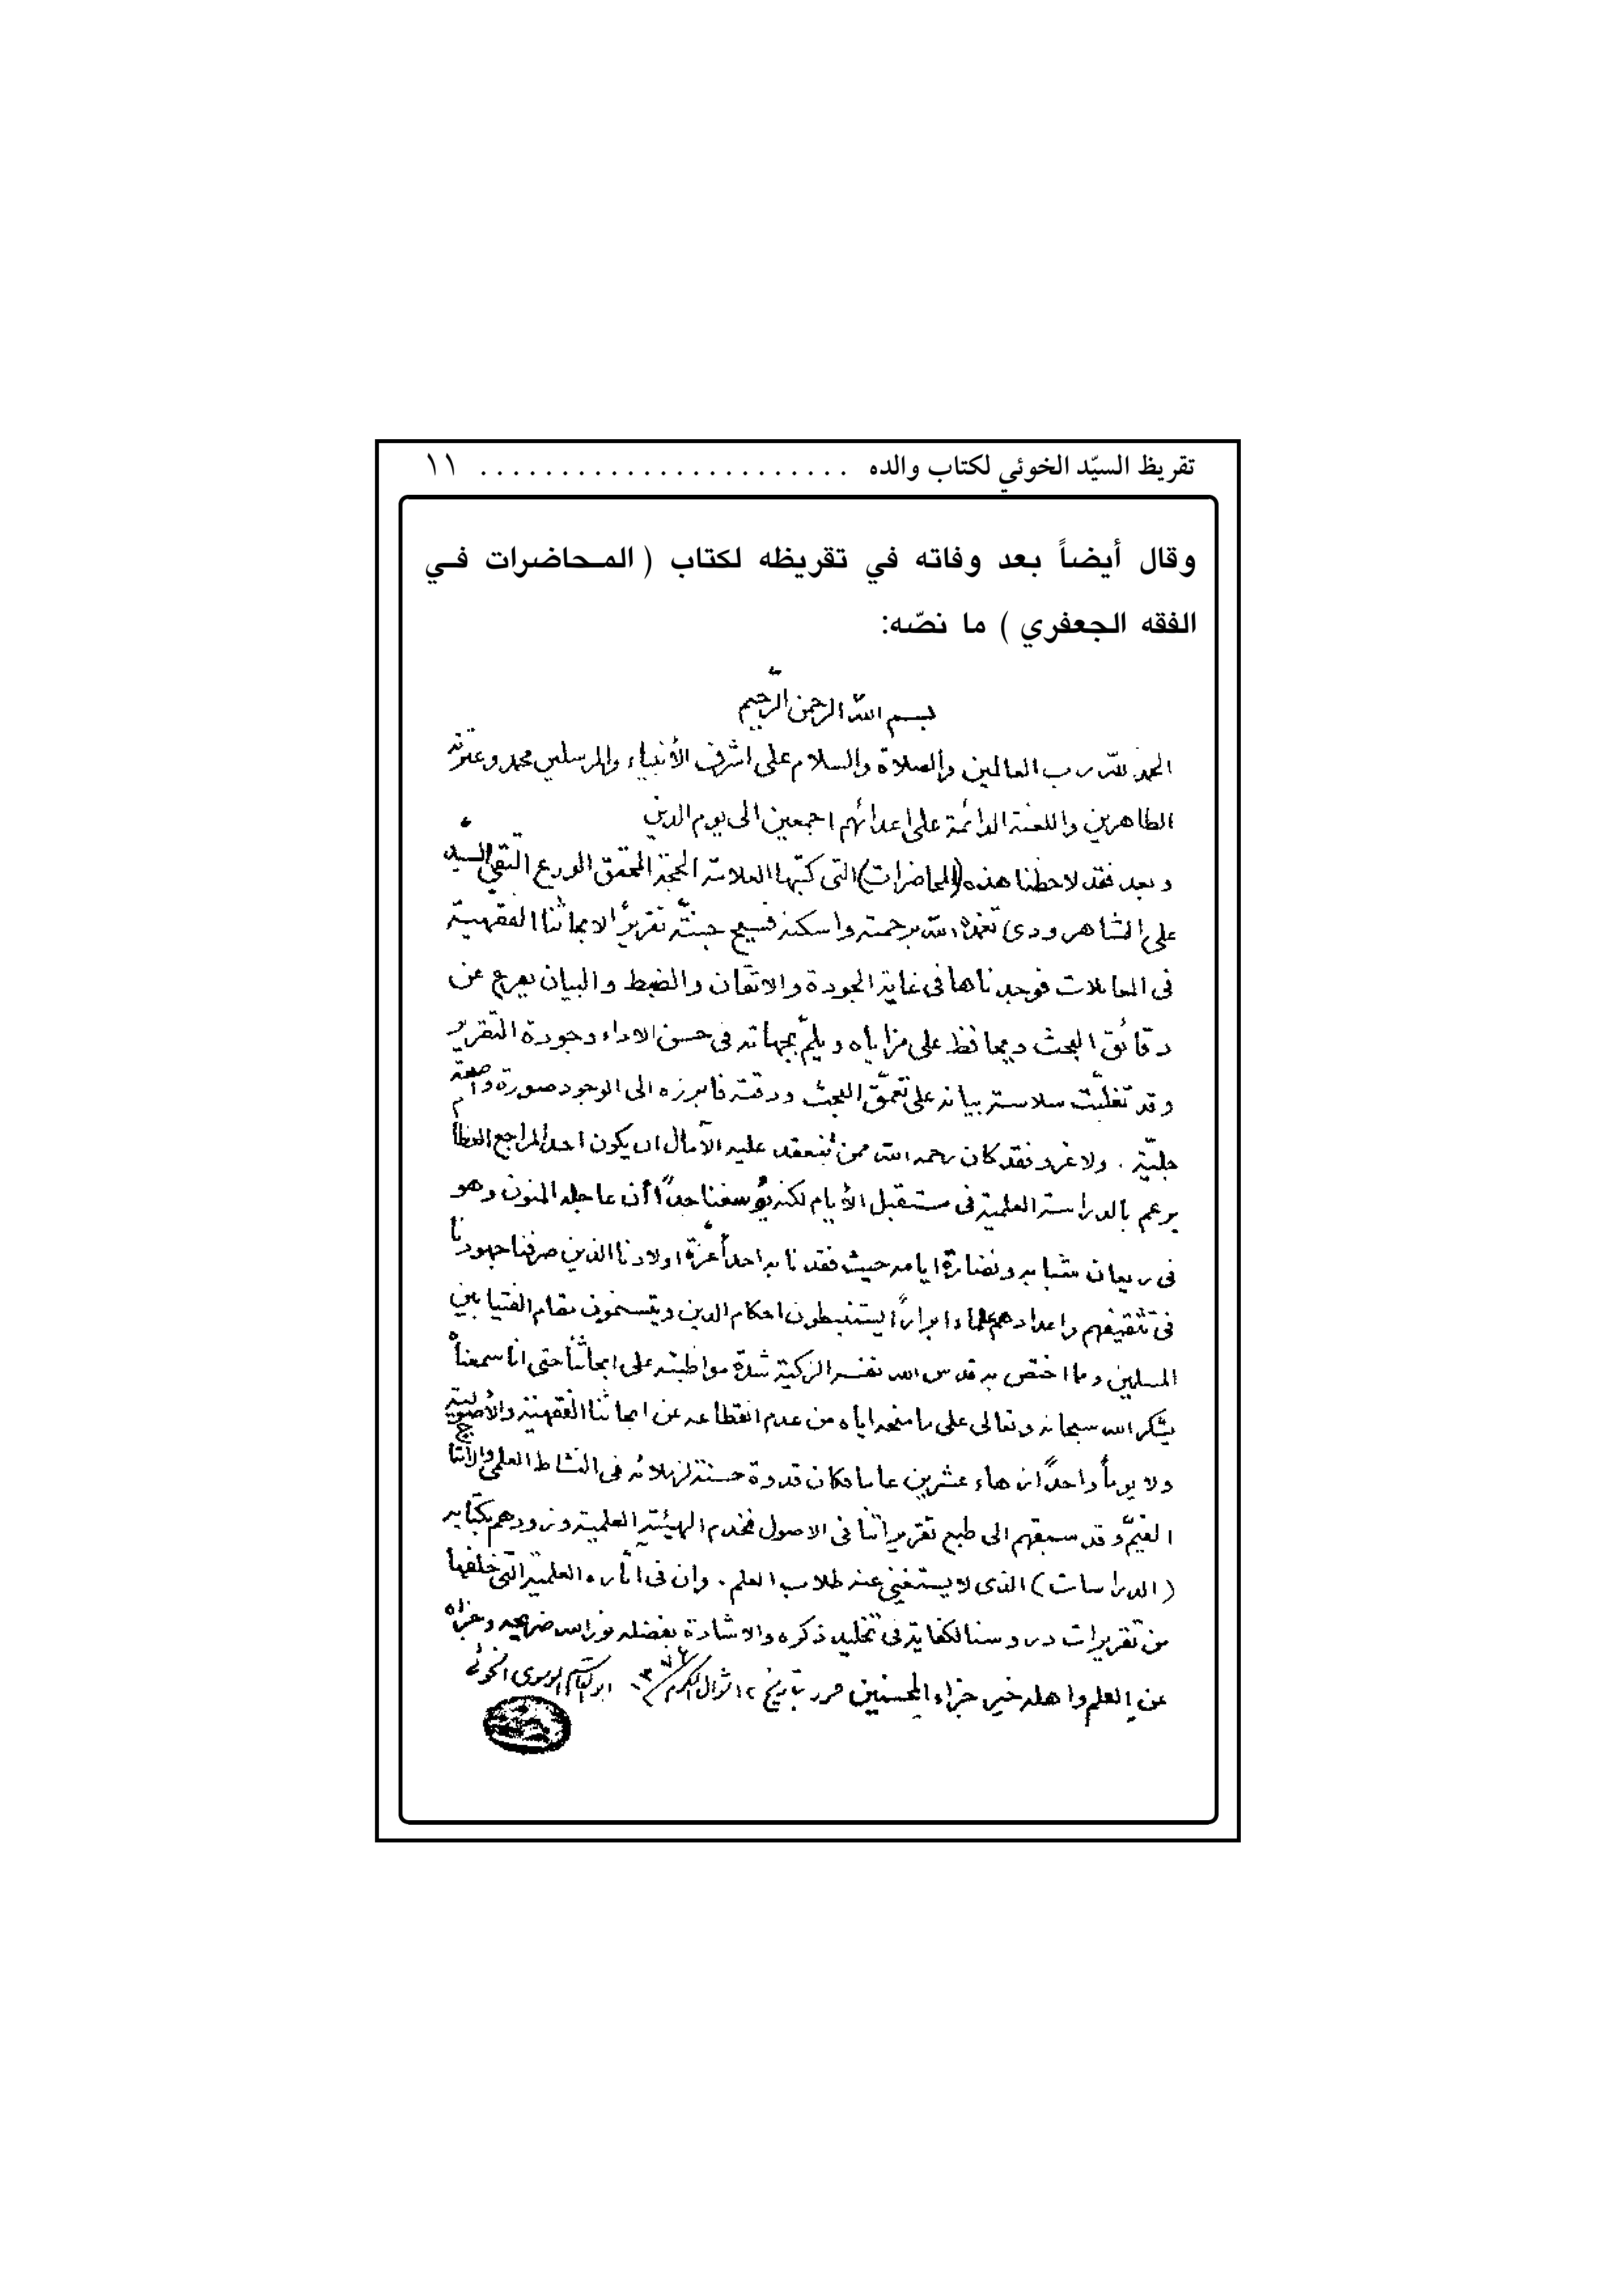 تقريظ السيّد الخوئي لكتاب والده . . . . . . . . . . . . . . . . . . . . . . . ١١
وقال أيضاً بعد وفاته في تقريظه لكتاب ( المحاضرات في
الفقه الجعفري ) ما نصّه:
بسم الله الرحمن الرحيم
الحمد لله رب العالمين والصلاة والسلام على اشرف الأنبياء والمرسلين محمد وعترته
الطاهرين واللعنة الدائمة على اعدائهم اجمعين الى يوم الدين
وبعد فقد لاحظنا هذه (المحاضرات) التى كتبها العلامة الحجة المحقق الورع التقي السيد
على الشاهرودى تغمده الله برحمته واسكنه فسيح جنته تقريراً لابحاثنا الفقهية
فى المعاملات فوجدناها فى غاية الجودة والاتقان والضبط والبيان يعرب عن
دقائق البحث ويحافظ على مزاياه ويلم بجهاته فى حسن الاداء وجودة التقرير
وقد تغلبت سلاسة بيانه على تعمق البحث ودقته فابرزه الى الوجود صورة واضحة
جلية . ولا غرو فقد كان رحمه الله ممن تنعقد عليه الآمال ان يكون احد المراجع العظام
بالدراسة العلمية فى مستقبل الأيام لكنه يؤسفنا جداً أن عاجله المنون وهو
فى ريعان شبابه ونضارة ايامه حيث فقدنا به احد أعزة اولادنا الذين صرفنا جهودنا
فى تثقيفهم واعدادهم علماء ابراراً يستنبطون احكام الدين ويتسنمون مقام الفتيا بين
المسلمين ومما اختص به قدس الله نفسه الزكية شدة مواظبته على ابحاثنا حتى انا سمعناه
يشكر الله سبحانه وتعالى على ما منحه اياه من عدم انقطاعه عن ابحاثنا الفقهية والأصولية
ولا يوماً واحداً عشرين عاما فكان قدوة حسنة لزملائه فى النشاط العلمى والانتاج
القيم وقد سبقهم الى طبع تقريراتنا فى الاصول فخدم الهيئة العلمية وزودهم بكتابه
(الدراسات) الذى لا يستغنى عنه طلاب العلم . وان فى آثاره العلمية التى خلفها
من تقريرات دروسنا لكفاية فى تخليد ذكره والاشادة بفضله نور الله ضريحه وجزاه
عن العلم واهله خير جزاء المحسنين حرر بتاريخ ١٢ شوال المكرم ١٣٧٦ ابو القاسم الموسوى الخوئى